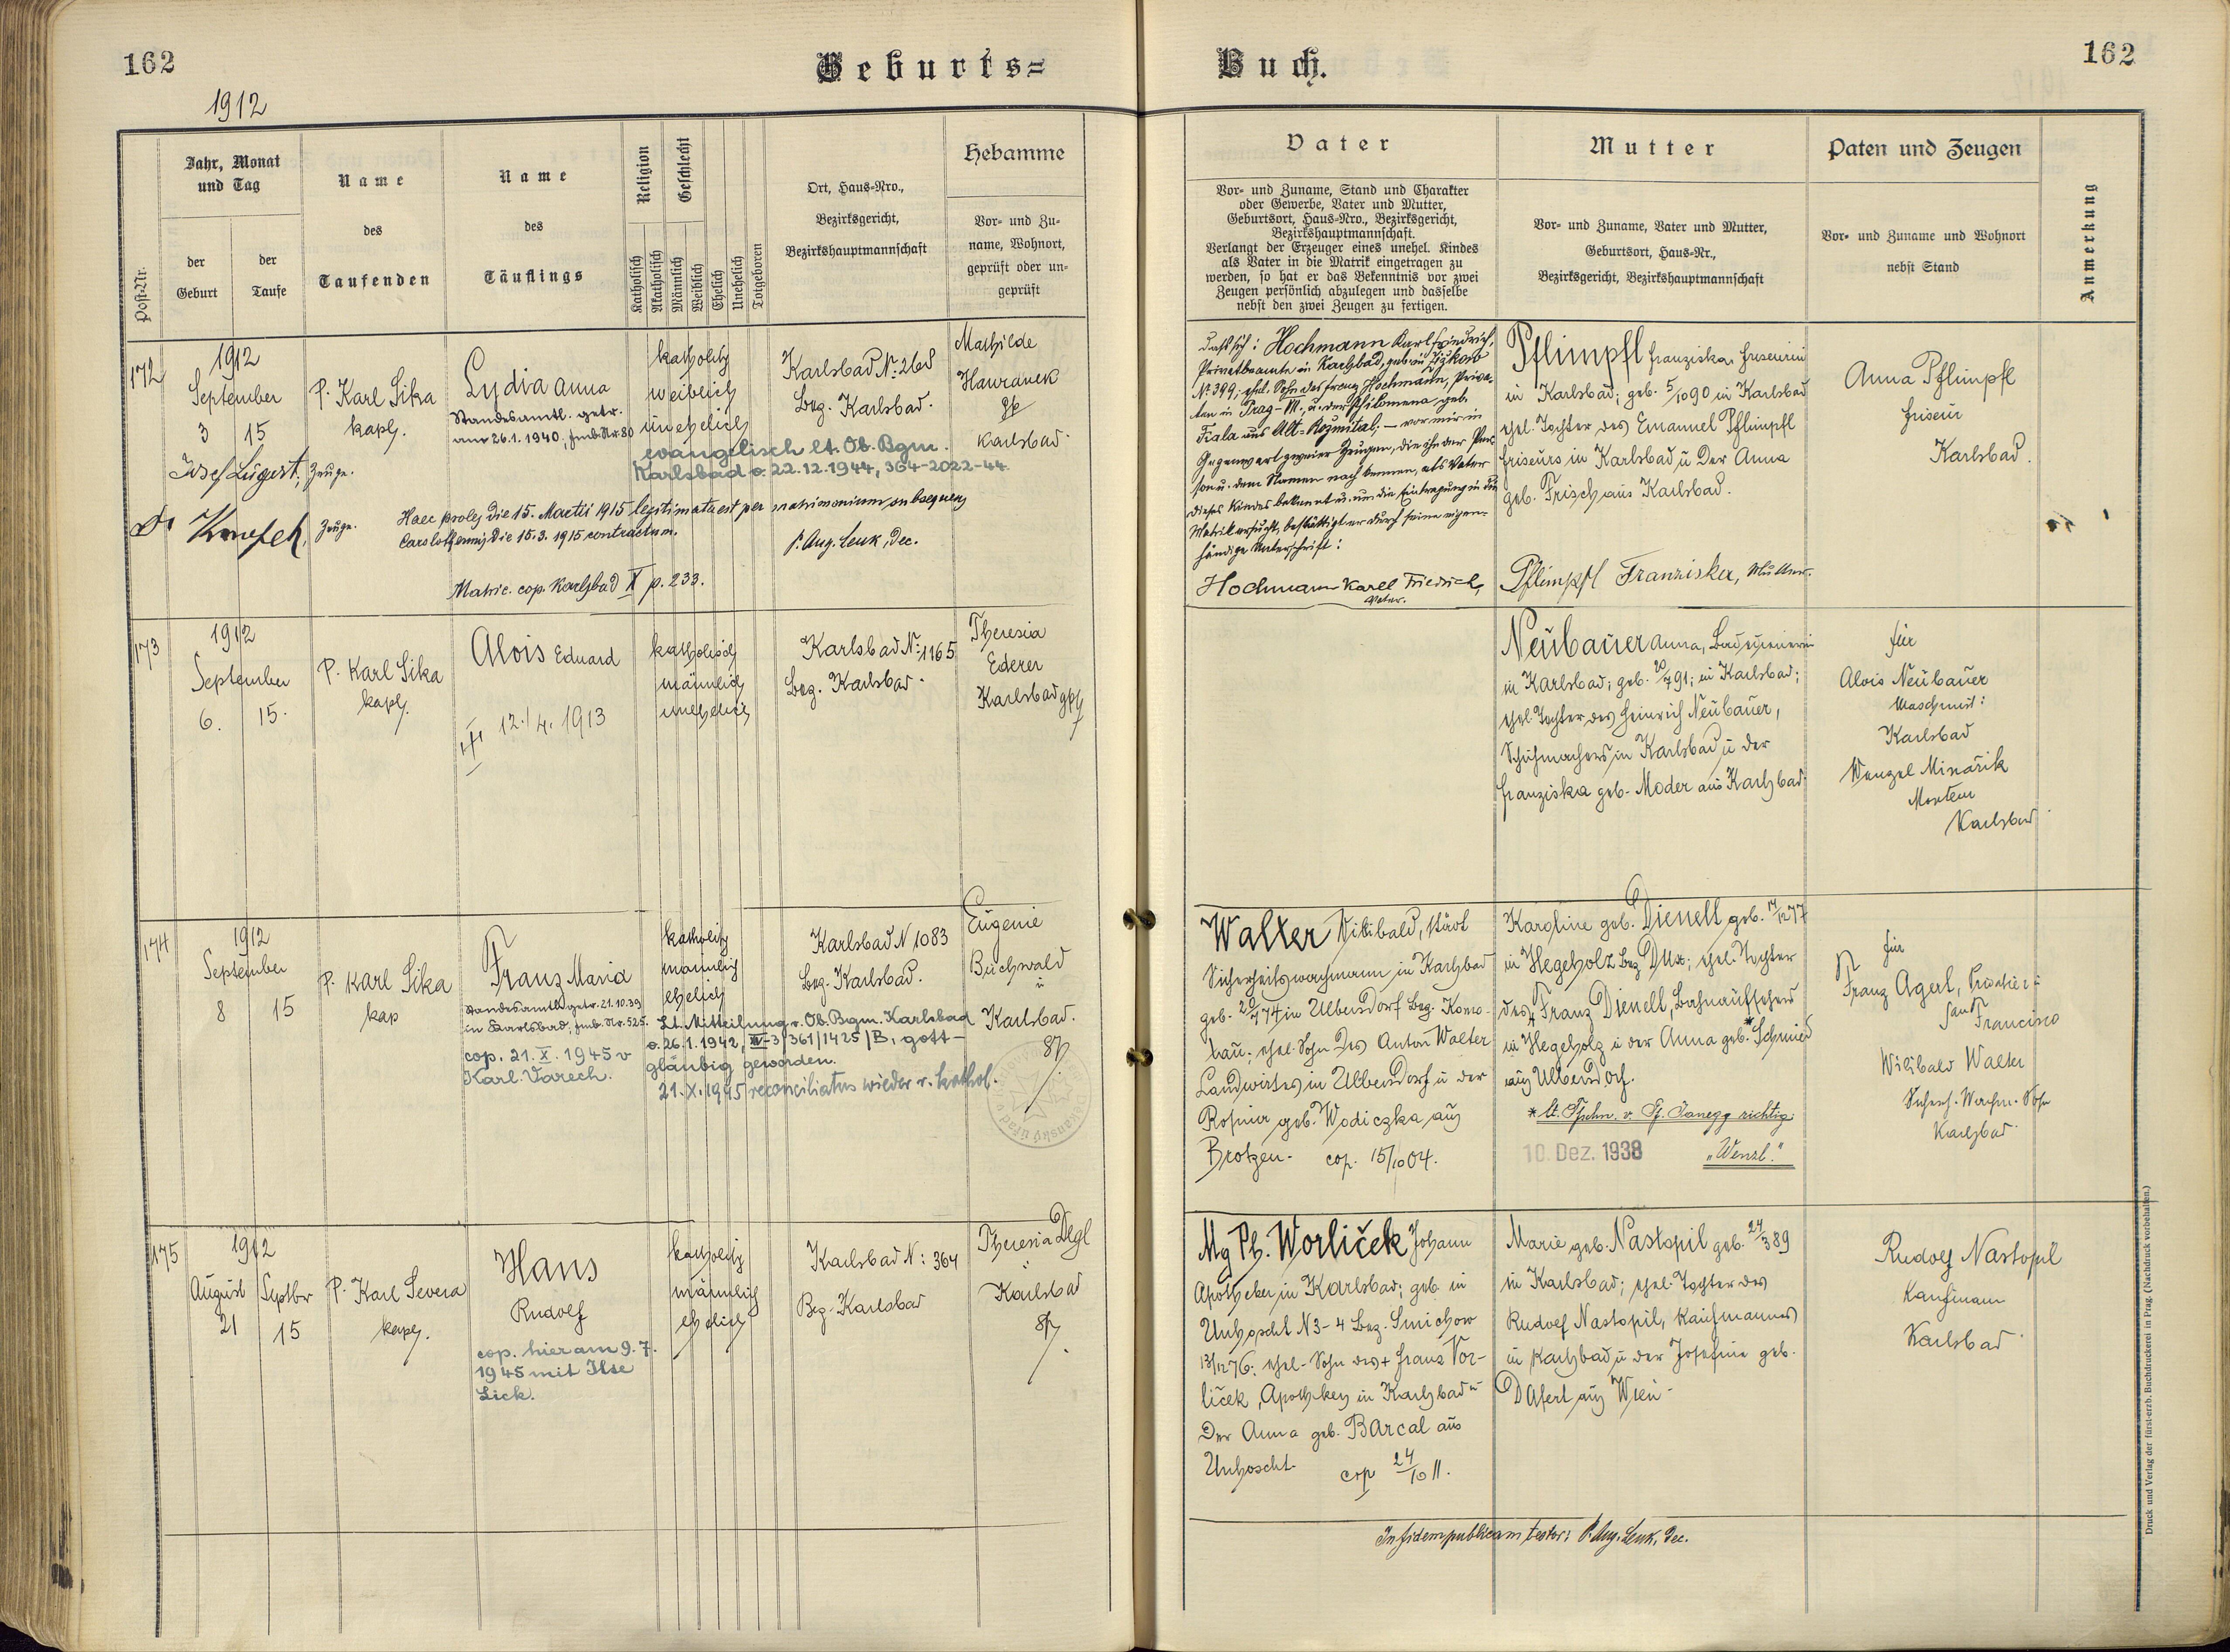 162
Geburts=
Buch.
162
1912
Post-Nr.
Jahr, Monat
und Tag
der
Geburt
der
Taufe
Name
des
Taufenden
Name
des
Täuflings
Religion
Geschlecht
Katholisch
Akatholisch
Männlich
Weiblich
Ehelich
Unehelich
Totgeboren
Ort, Haus-Nro.,
Bezirksgericht,
Bezirkshauptmannschaft
Hebamme
Vor- und Zu-
name, Wohnort,
geprüft oder un-
geprüft
Vater
Vor- und Zuname, Stand und Charakter
oder Gewerbe, Vater und Mutter,
Geburtsort, Haus-Nro., Bezirksgericht,
Bezirkshauptmannschaft.
Verlangt der Erzeuger eines unehel. Kindes
als Vater in die Matrik eingetragen zu
werden, so hat er das Bekenntnis vor zwei
Zeugen persönlich abzulegen und dasselbe
nebst den zwei Zeugen zu fertigen.
Mutter
Vor- und Zuname, Vater und Mutter,
Geburtsort, Haus-Nr.,
Bezirksgericht, Bezirkshauptmannschaft
Paten und Zeugen
Vor- und Zuname und Wohnort
nebst Stand
Anmerkung
172
1912
September
3 15
P. Karl Sika
kapl.
Lydia Anna
Standesamtl. getr.
am 26.1.1940. fmb. Nr. 80
katholisch
weiblich
unehelich
evangelisch lt. Ob. Bgm.
Karlsbad v. 22.12.1944, 364-2022-44
Karlsbad N:
Bez. Karlsbad.
Mathilde
Hawranek
gp
Karlsbad
Josef Lugert, Zeuge.
Dr Zeuge.
Haec proles die 15. Martii 1915 legitimata est per matrimonium subsequens
die 15.3.1915 contractum.
P. Aug. Leuk, Dec.
Matric. cop. Karlsbad X p. 233.
Hochmann Karl Friedrich,
Privatbeamte in Karlsbad, geb. in Žižkow
N: 399; ehel. Sohn des Franz Hochmann, Priva-
ten in Prag-VII., u. der Philomena geb.
Fiala aus Alt-Rožmital, – vor mir in
Gegenwart zweier Zeugen, die ihn der Per-
son u. dem Namen nach kennen, als Vater
dieses Kindes bekennt u. um die Eintragung in die
Matrik ersucht, bestättigt er durch seine eigen-
händige Unterschrift:
Hochmann Karl Friedrich,
Vater.
Pflimpfl Franziska, Friseurin
in Karlsbad; geb. 5/10 90 in Karlsbad
ehel. Tochter des Emanuel Pflimpfl
Friseurs in Karlsbad u. der Anna
geb. Frisch aus Karlsbad.
Pflimpfl Franziska, Mutter.
Anna Pflimpfl
Friseur
Karlsbad.
173
1912
September
6. 15.
P. Karl Sika
kapl.
Alois Eduard
12./4. 1913
katholisch
männlich
unehelich
Karlsbad N: 1165
Bez. Karlsbad
Theresia
Ederer
Karlsbad gp
Neubauer Anna,
in Karlsbad; geb. 20/7 91; in Karlsbad;
ehel. Tochter des Heinrich Neubauer,
Schuhmachers in Karlsbad u. der
Franziska geb. Moder aus Karlsbad
für
Alois Neubauer
Maschinist:
Karlsbad
Wenzel Minařik
Karlsbad
174
1912
September
8 15
P. Karl Sika
kap
Franz Maria
Standesamtl. getr. 21.10.39
in Karlsbad, fmb. Nr. 525.
cop. 21.X.1945 v
Karl. Varech.
katholisch
männlich
ehelich
Lt. Mitteilung v. Ob. Bgm. Karlsbad
v. 26.1.1942, IV-3/361/1425/B, gott-
gläubig geworden.
21.X.1945 reconciliatus wieder r. kathol.
Karlsbad N 1083
Bez. Karlsbad.
Eugenie
Buchwald
Karlsbad.
gp
Walter Wilibald, städt
Sicherheitswachmann in Karlsbad
geb. 20/7 74 in Ulbersdorf Bez. Komo-
tau; ehel. Sohn des Anton Walter
Landwirtes in Ulbersdorf u. der
Rosina geb. Wodiczka aus
Brotzen. cop. 15/10 04.
Karoline geb. Dienelt geb. 14/12 77
in Hegeholz Bez Dux; ehel. Tochter
des Franz Dienelt, Bahnaufsehers
in Hegeholz u. der Anna geb. *Schmied
aus Ulbersdorf.
* lt. Tfschn. v. Pf. Janegg richtig:
10. Dez. 1938
„Wenzl."
für
Franz Agert, Privatier:
San Francisco
Wilibald Walter
Karlsbad
175
1912
August Septbr
21 15
P. Karl Severa
kapl.
Hans
Rudolf
cop. hier am 9.7.
1945 mit Ilse
Lick.
katholisch
männlich
ehelich
Karlsbad N: 364
Bez. Karlsbad
Theresia Degl
Karlsbad
gp
Mg Ph. Worliček Johann
Apotheker in Karlsbad; geb. in
Unhoscht N 3-4 Bez. Smichow
13/12 76; ehel. Sohn des + Franz Vor-
liček, Apothekers in Karlsbad u
der Anna geb. Barcal aus
Unhoscht. cop 24/10 11.
Marie geb. Nastopil geb. 24/3 89
in Karlsbad; ehel. Tochter des
Rudolf Nastopil, Kaufmannes
in Karlsbad u. der Josefine geb.
Dafert aus Wien.
Rudolf Nastopil
Kaufmann
Karlsbad
In fidem publicam testor: P. Aug. Leuk, Dec.
Druck und Verlag der fürst-erzb. Buchdruckerei in Prag. (Nachdruck vorbehalten.)